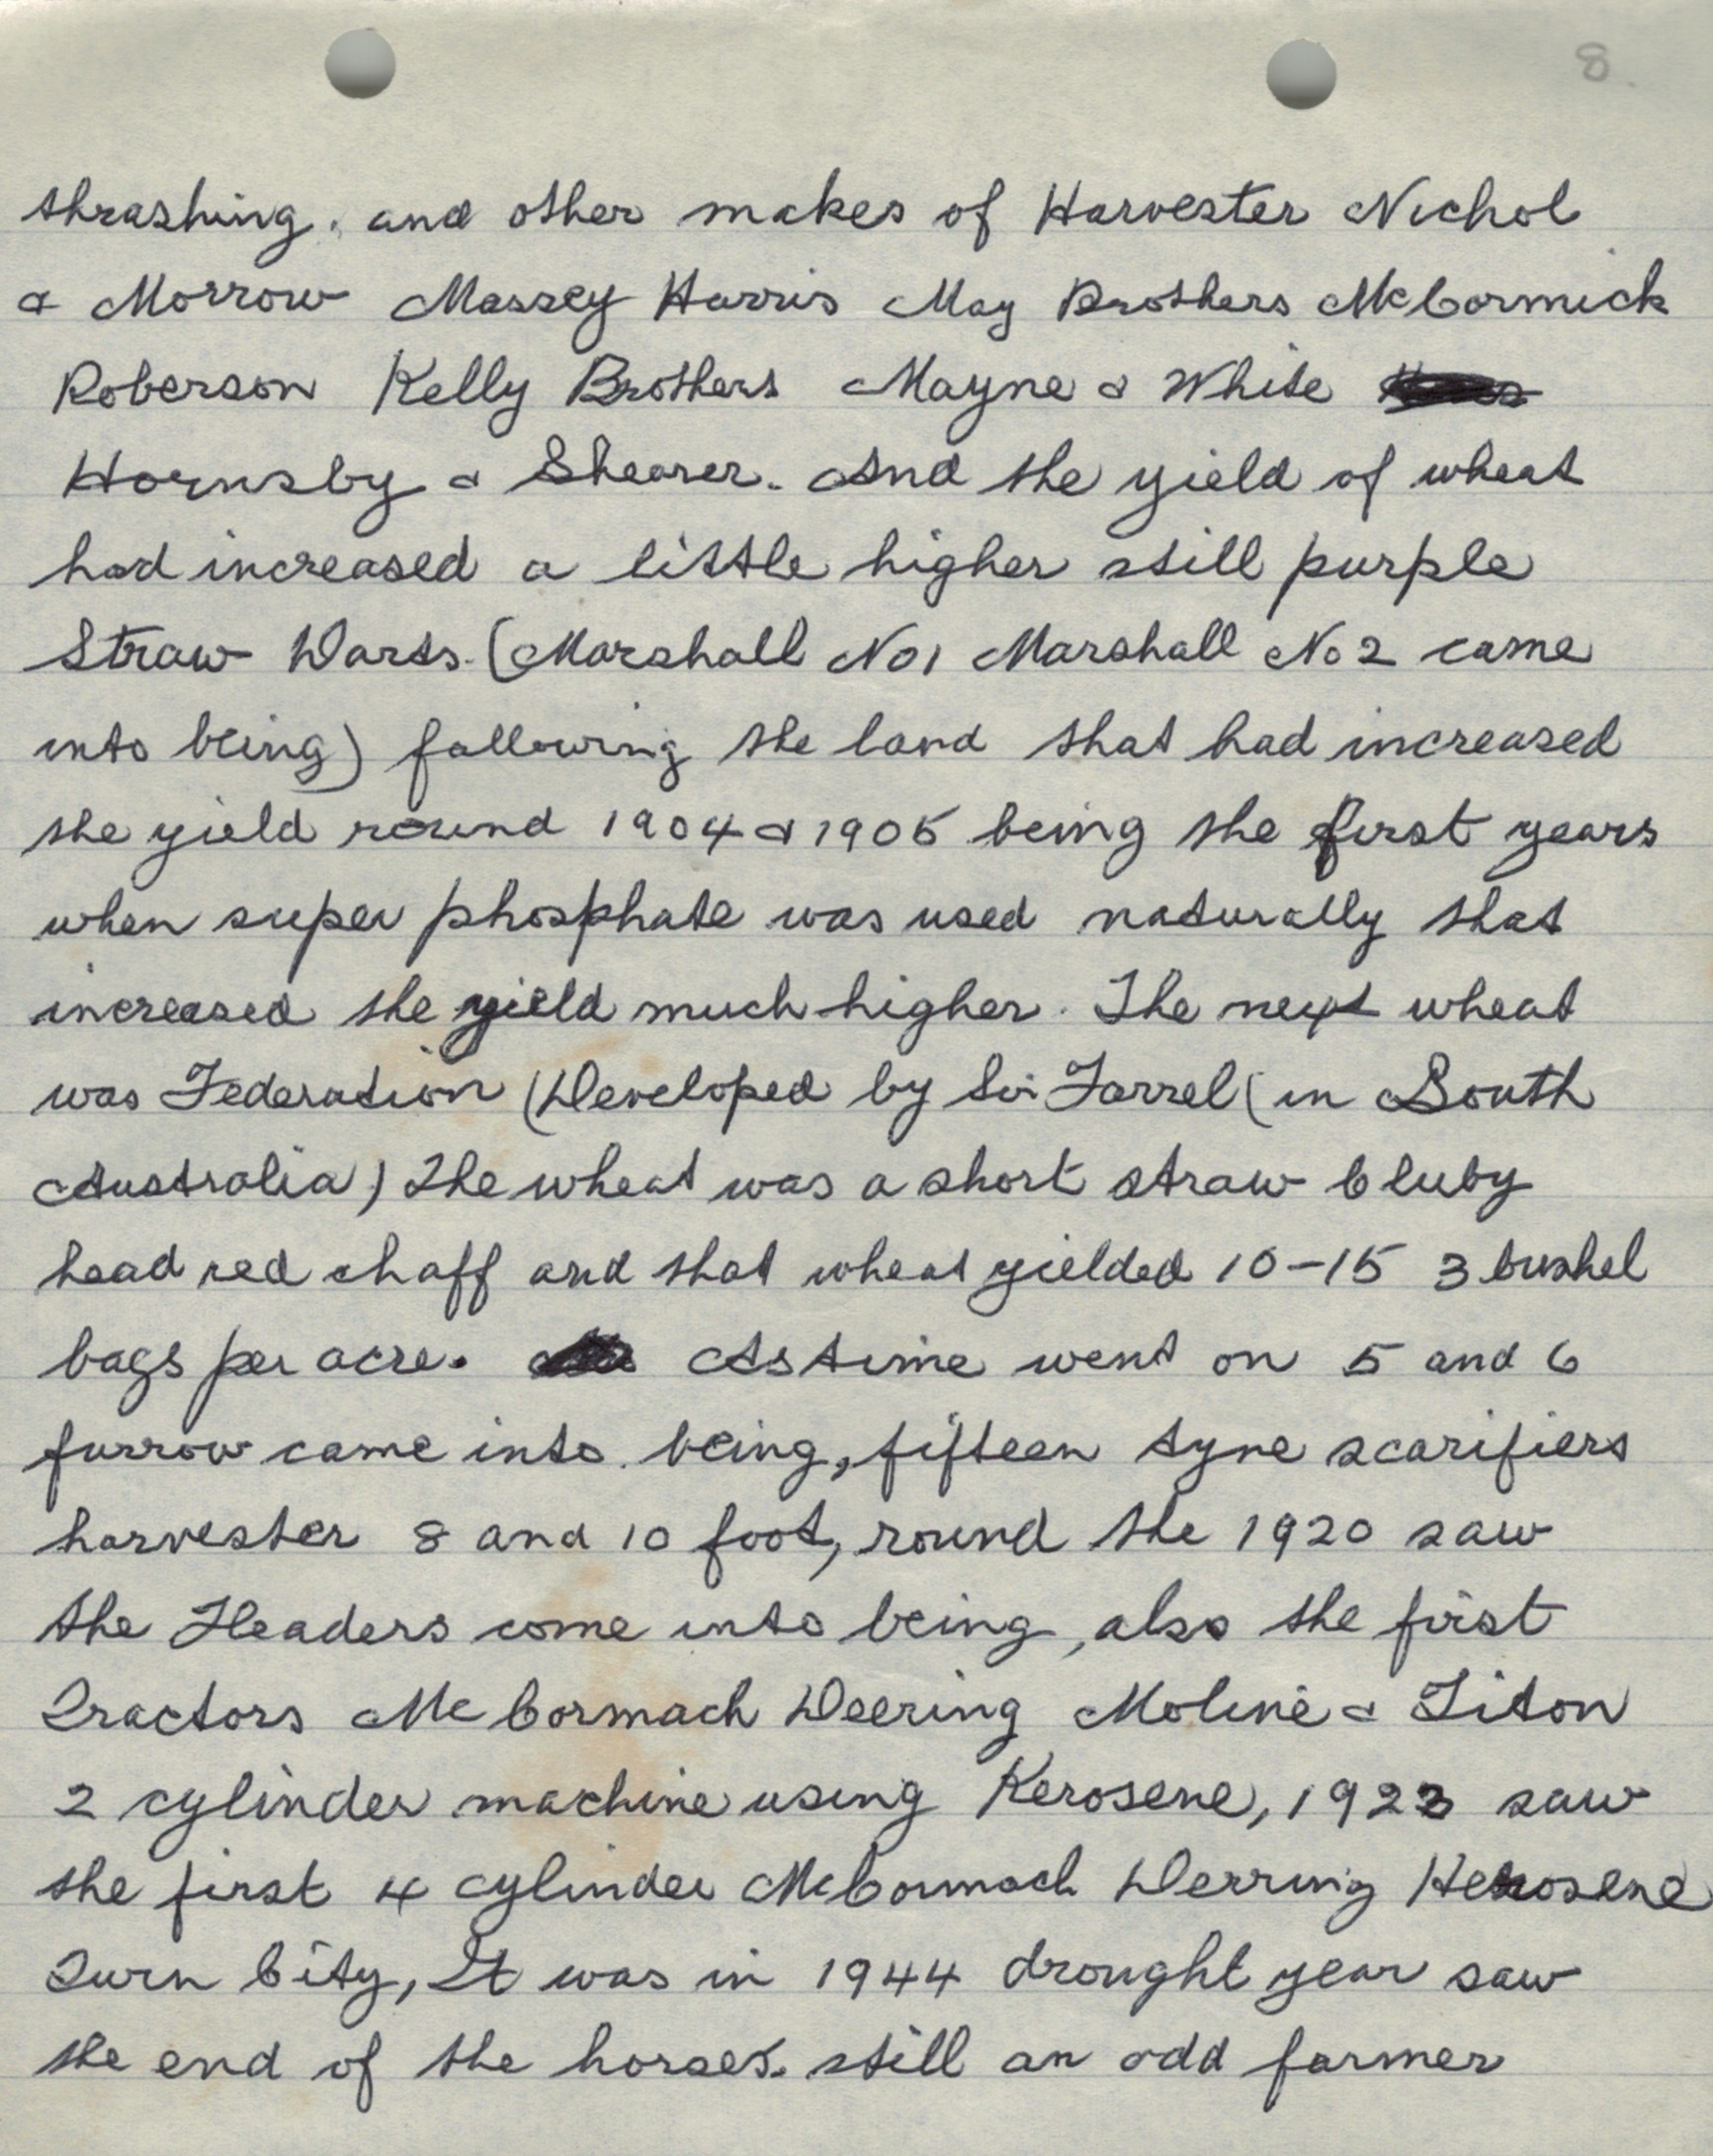 8
thrashing. and other makes of Harvester Nichol
& Morrow Massey Harris May Brothers McCormick
Roberson Kelly Brothers Mayne & White
Hornsby & Shearer. And the yield of wheat
had increased a little higher still purple
Straw Warts. (Marshall No1 Marshall No 2 came
into being) fallowing the land that had increased
the yield round 1904 & 1905 being the first years
when super phosphate was used naturally that
increased the yield much higher. The next wheat
was Federation (Developed by Sir Farrel (in South
Australia) The wheat was a short straw Cluby
head red chaff and that wheat yielded 10-15 3 bushel
bags per acre. As time went on 5 and 6
furrow came into being, fifteen tyne scarifiers
harvester 8 and 10 foot, round the 1920 saw
the Headers come into being, also the first
Tractors McCormach Deering Moline & Titon
2 cylinder machine using Kerosene, 1923 saw
the first 4 cylinder McCormach Derring Kerosene
Twin City, It was in 1944 drought year saw
the end of the horses. still an odd farmer